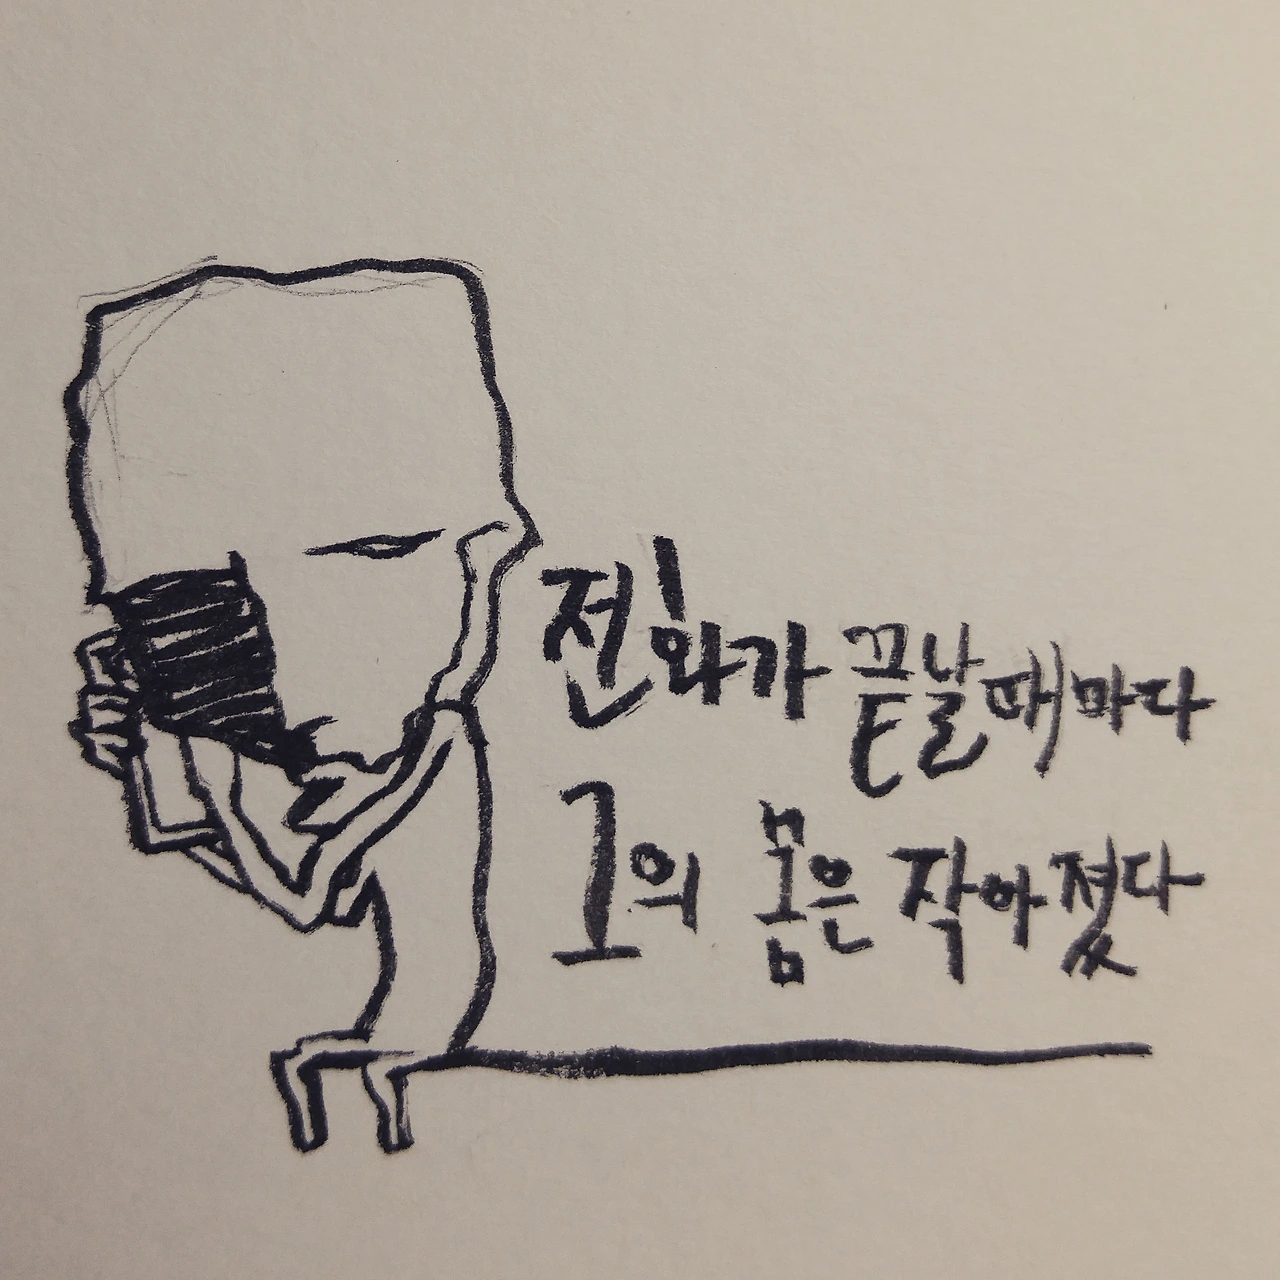 전화가 끝날때마다
그의 몸은 작아졌다